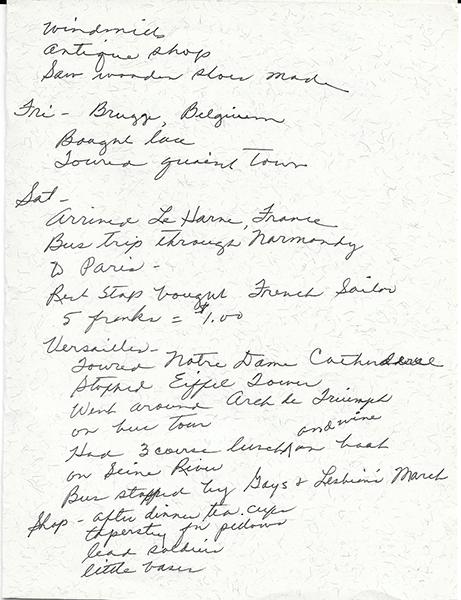 windmills
antique shop
Saw wooden shoes made
Fri - Brugge, Belgium
Bought lace
Toured quaint town
Sat -
Arrived Le Harve, France
Bus trip through Normandy
to Paris -
Rest Stop bought French Sailor
5 franks = $1.00
Versailles -
Toured Notre Dame
Stopped Eiffel Tower
Went around Arch de Triumph
on bus tour
and wine
Had 3 course lunch on boat
on Seine River
Bus stopped by Gays & Lesbian's March
Shop - after dinner tea cups
tapestry for pillows
lead soldier
little vases